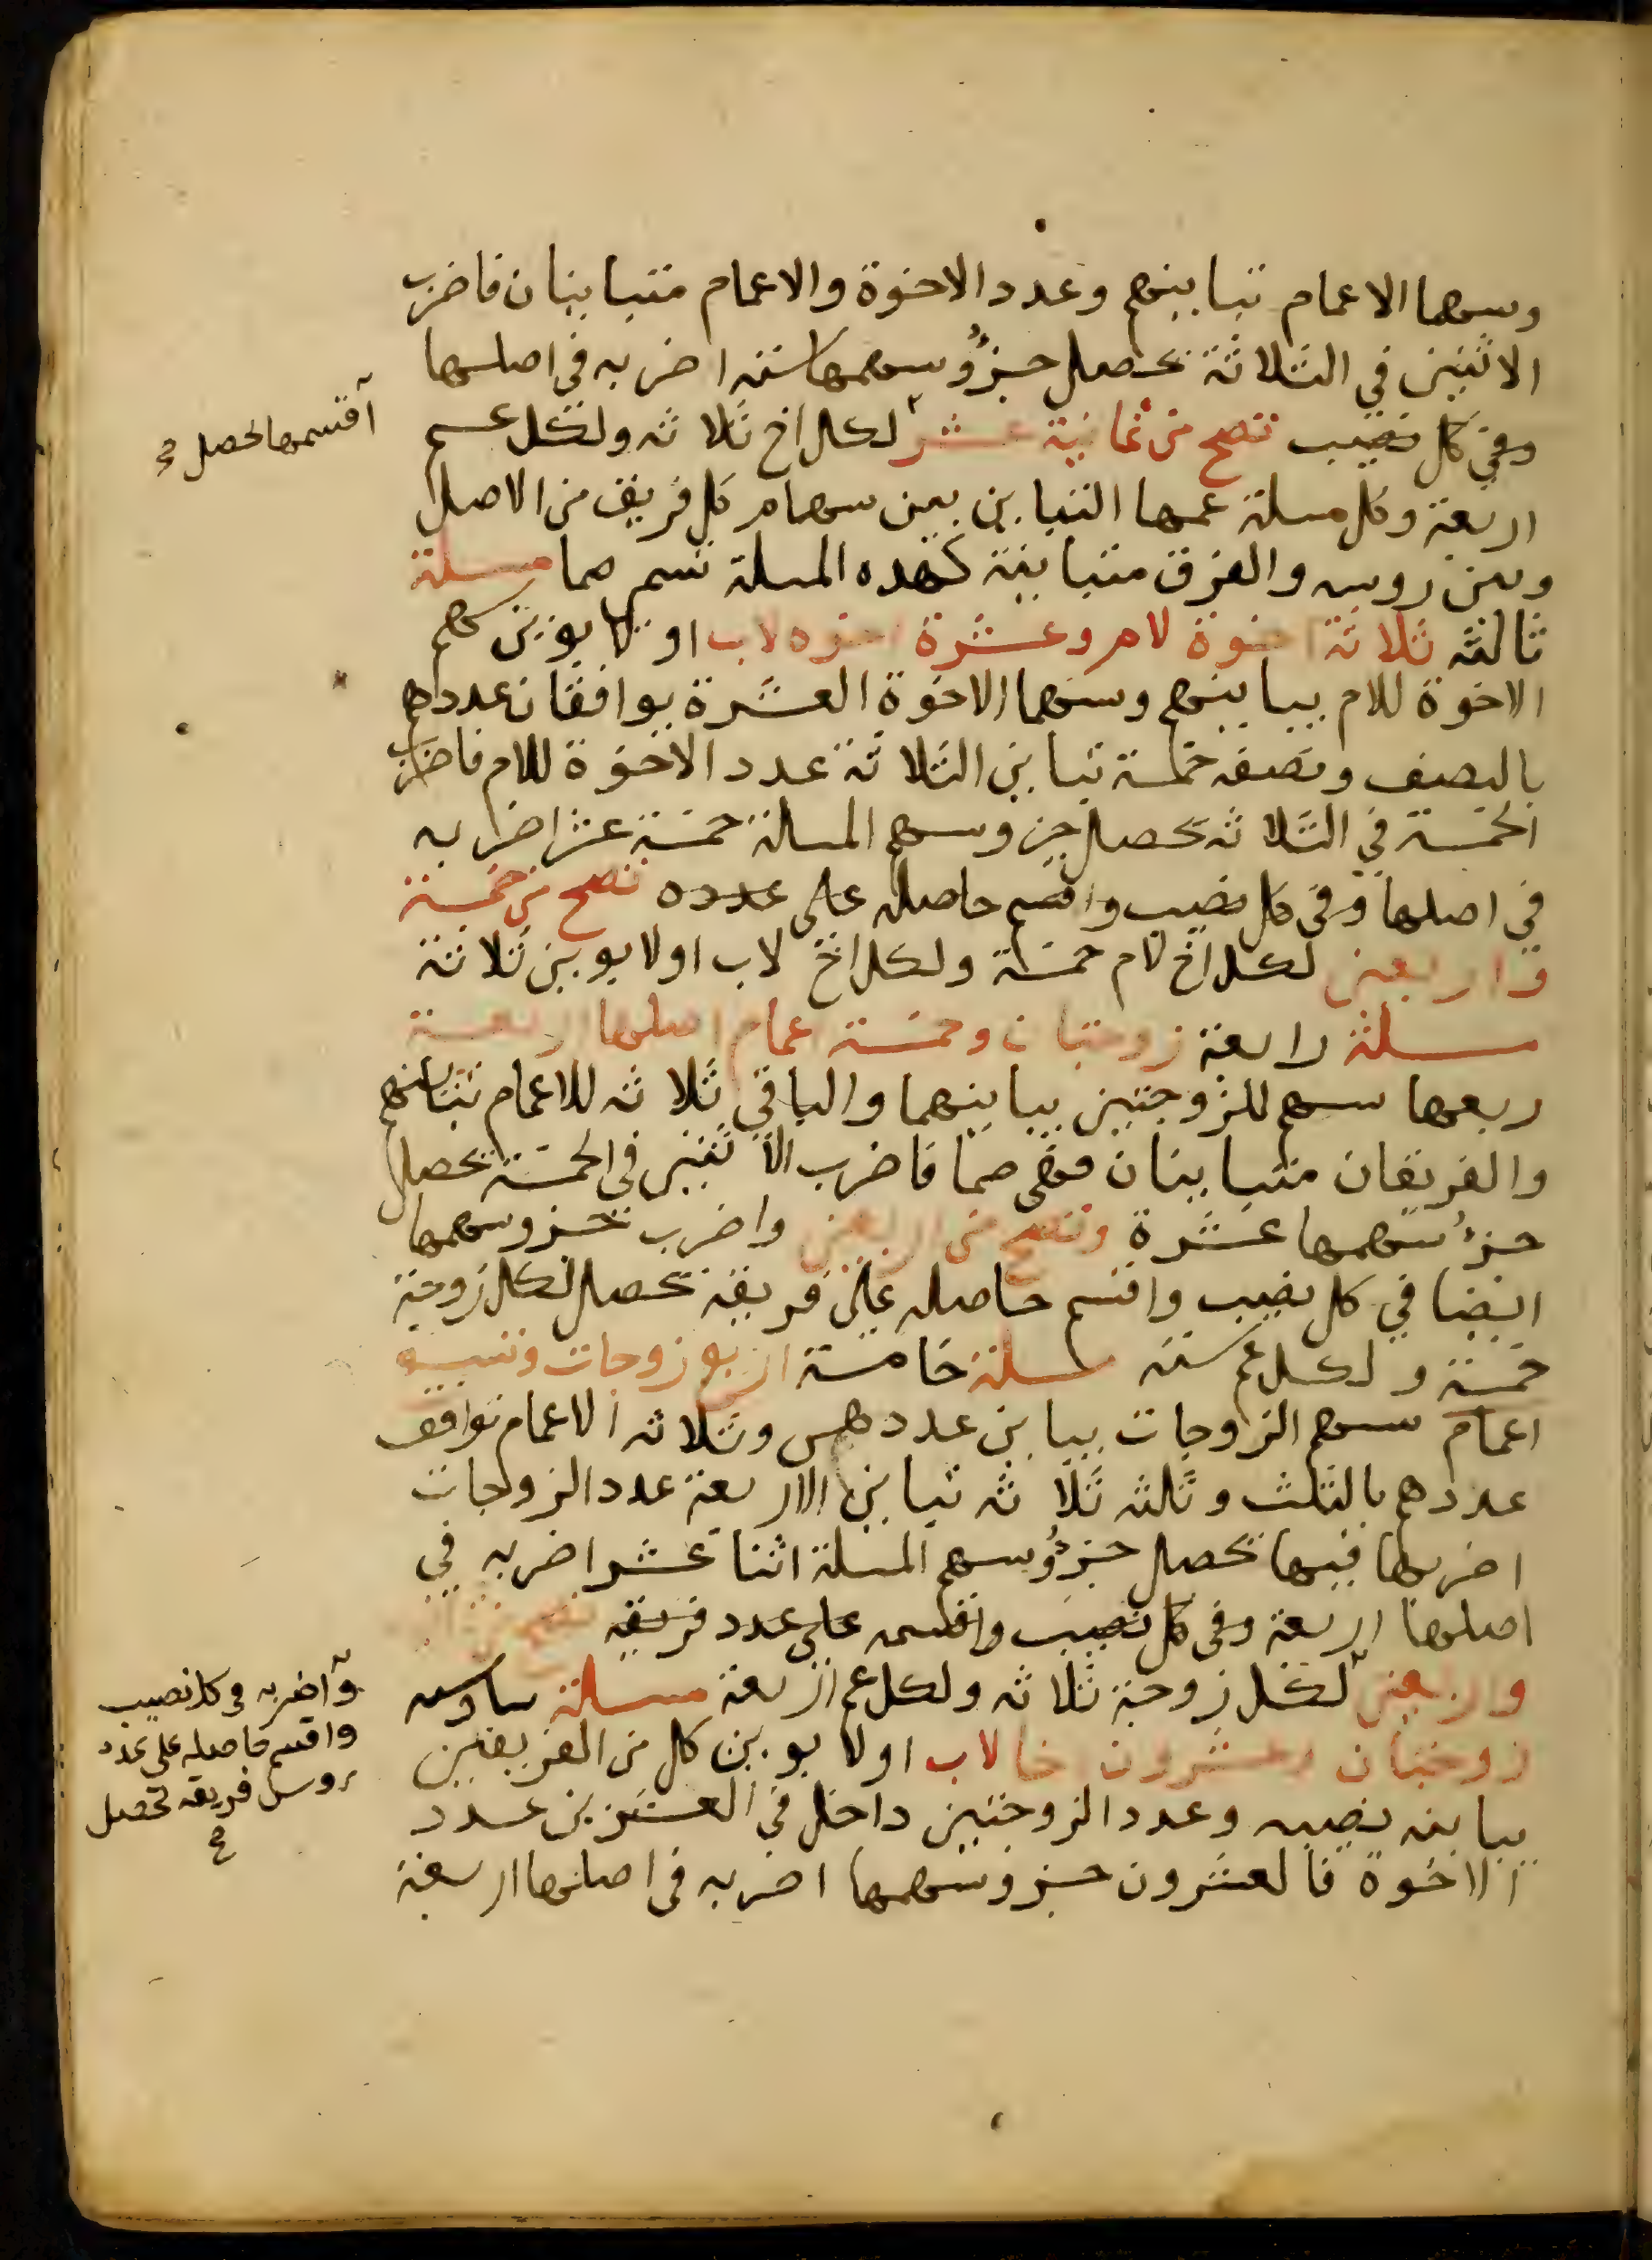 وسهما الاعمام تباينهم وعدد الاخوة والاعمام متباينان فاضرب
الاثنين في الثلاثة يحصل جزؤ سهمها ستة اضربه في اصلها
وفي كل نصيب تصح من ثمانية عشر لكل اخ ثلاثه ولكل عم
اقسمها يحصل صح
اربعة وكل مسلة عمها التباين بين سهام كل فريق من الاصل
وبين روسه والفرق متباينة كهده المسلة تسم صما مسلة
ثالثه ثلاثة اخوة لام وعشرة اخوه لاب او لابوين سهم
الاخوة للام يباينهم وسهما الاخوة العشرة يوافقان عددهم
بالنصف ونصفه خمسة تباين الثلاثة عدد الاخوة للام فاضرب
الخمسة في الثلاثه يحصل جزو سهم المسلة خمسة عشر اضربه
في اصلها وفي كل نصيب واقسم حاصله على عدده تصح من خمسة
واربعين لكل اخ لام خمسة ولكل اخ لاب او لابوين ثلاثة
مسلة رابعة زوجتان وخمسة اعمام اصلها اربعة
ربعها سهم للزوجتين يباينهما والباقي ثلاثه للاعمام تباينهم
والفريقان متباينان فهي صما فاضرب الاثنين في الخمسة يحصل
جزء سهمها عشرة وتصح من اربعين واضرب جزو سهمها
ايضا في كل نصيب واقسم حاصله على فريقه يحصل لكل زوجة
خمسة ولكل عم ستة مسلة خامسة اربع زوجات وتسعه
اعمام سهم الزوجات يباين عددهن وثلاثه الاعمام توافق
عددهم بالثلث وثلثه ثلاثه تباين الاربعة عدد الزوجات
اضربها فيها يحصل جزؤ سهم المسلة اثنا عشر اضربه في
اصلها اربعة وفي كل نصيب واقسمه على عدد فريقه تصح من
واربعين لكل زوجة ثلاثه ولكل عم اربعة مسلة سادسه
واضربه في كل نصيب
واقسم حاصله على عدد
روس فريقه يحصل
صح
زوجتان وعشرون اخا لاب او لابوين كل من الفريقين
يباينه نصيبه وعدد الزوجتين داخل في العشرين عدد
الاخوة فالعشرون جزو سهمها اضربه في اصلها اربعة